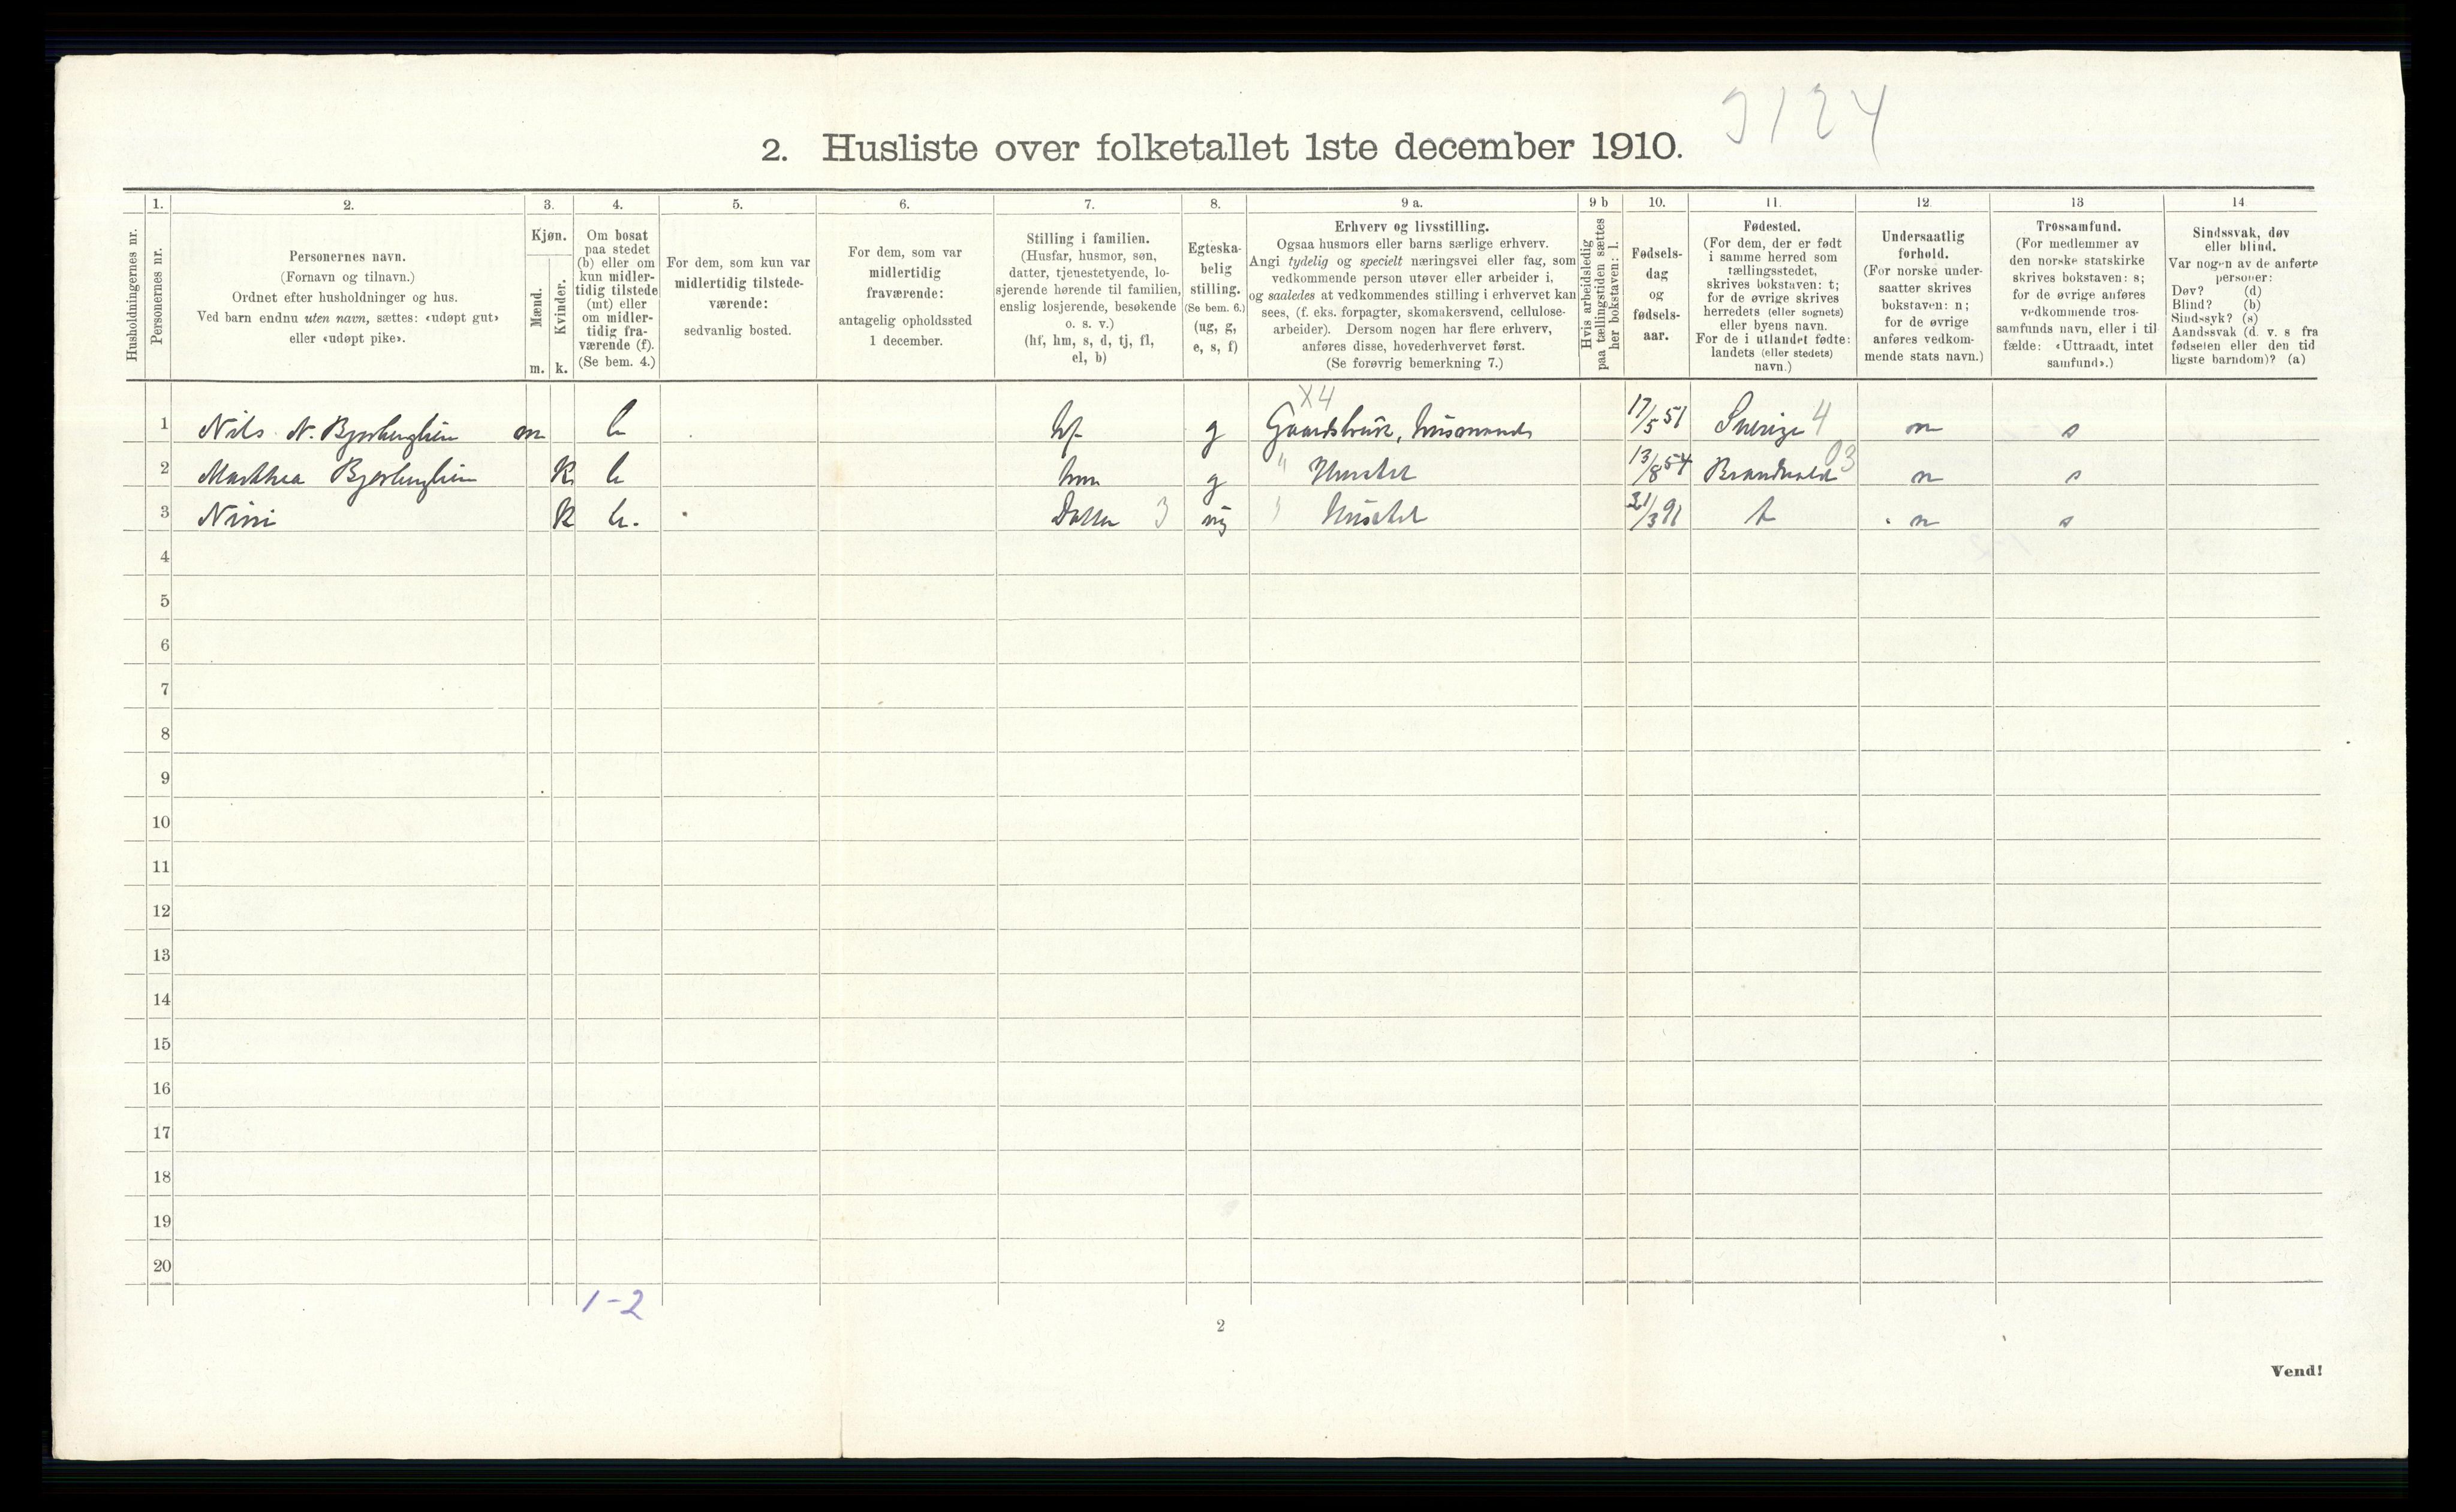 2. Husliste over folketallet 1ste december 1910.
Husholdningernes nr.
1.
Personernes nr.
2.
Personernes navn.
(Fornavn og tilnavn.)
Ordnet efter husholdninger og hus.
Ved barn endnu uten navn, sættes: «udøpt gut»
eller «udøpt pike».
3.
Kjøn.
Mænd.
Kvinder.
m.
k.
4.
Om bosat
paa stedet
(b) eller om
kun midler-
tidig tilstede
(mt) eller
om midler-
tidig fra-
værende (f).
(Se bem. 4.)
5.
For dem, som kun var
midlertidig tilstede-
værende:
sedvanlig bosted.
6.
For dem, som var
midlertidig
fraværende:
antagelig opholdssted
1 december.
7.
Stilling i familien.
(Husfar, husmor, søn,
datter, tjenestetyende, lo-
sjerende hørende til familien,
enslig losjerende, besøkende
o. s. v.)
(hf, hm, s, d, tj, fl,
el, b)
8.
Egteska-
belig
stilling.
(Se bem. 6.)
(ug, g,
e, s, f)
9 a.
Erhverv og livsstilling.
Ogsaa husmors eller barns særlige erhverv.
Angi tydelig og specielt næringsvei eller fag, som
vedkommende person utøver eller arbeider i,
og saaledes at vedkommendes stilling i erhvervet kan
sees, (f. eks. forpagter, skomakersvend, cellulose-
arbeider). Dersom nogen har flere erhverv,
anføres disse, hovederhvervet først.
(Se forøvrig bemerkning 7.)
9 b
Hvis arbeidsledig
paa tællingstiden sættes
her bokstaven: l.
10.
Fødsels-
dag
og
fødsels-
aar.
11.
Fødested.
(For dem, der er født
i samme herred som
tællingsstedet,
skrives bokstaven: t;
for de øvrige skrives
herredets (eller sognets)
eller byens navn.
For de i utlandet fødte:
landets (eller stedets)
navn.)
12.
Undersaatlig
forhold.
(For norske under-
saatter skrives
bokstaven: n;
for de øvrige
anføres vedkom-
mende stats navn.)
13
Trossamfund.
(For medlemmer av
den norske statskirke
skrives bokstaven: s;
for de øvrige anføres
vedkommende tros-
samfunds navn, eller i til
fælde: «Uttraadt, intet
samfund».)
14
Sindssvak, døv
eller blind.
Var nogen av de anførte
personer:
Døv? (d)
Blind? (b)
Sindssyk? (s)
Aandssvak (d. v. s fra
fødselen eller den tid
ligste barndom)? (a)
X4
1 Nils N. m b hf g 17/5 51 Sverige 4 n s
2 Marthea k b hm g " Husstel 13/8 54 Brandvold 03 n s
3 k b. Datter 3 ug " Husstel 21/3 91 t n s
4
5
6
7
8
9
10
11
12
13
14
15
16
17
18
19
20
1-2
2
Vend!